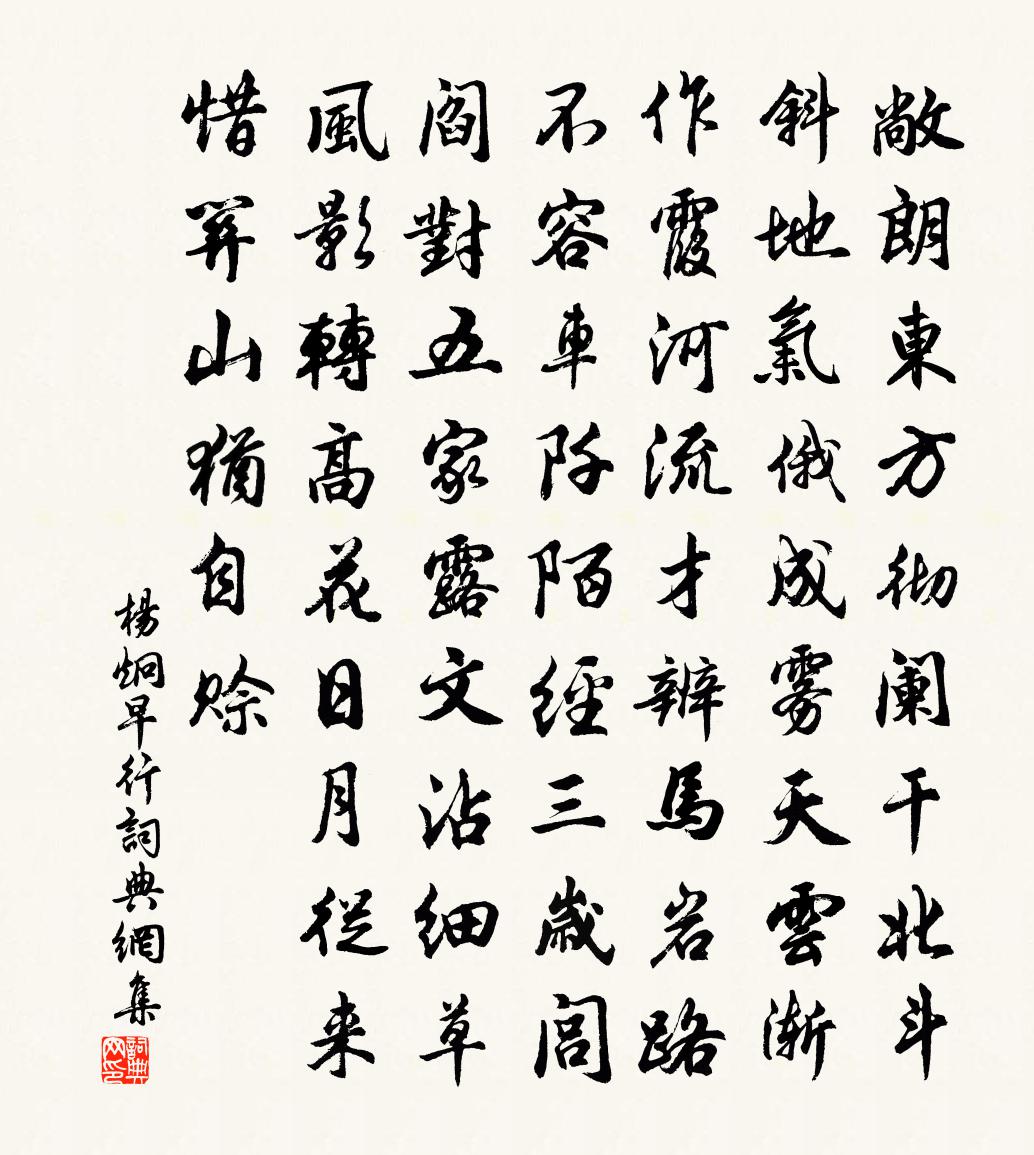 敞朗東方彻阑干北斗
斜地氣俄成雾天雲渐
作霞河流才辨馬岩路
不容車阡陌經三歲闾
阎對五家露文沾細草
風影轉高花日月從来
惜関山猶自赊
楊炯早行詞典網集
詞典网印